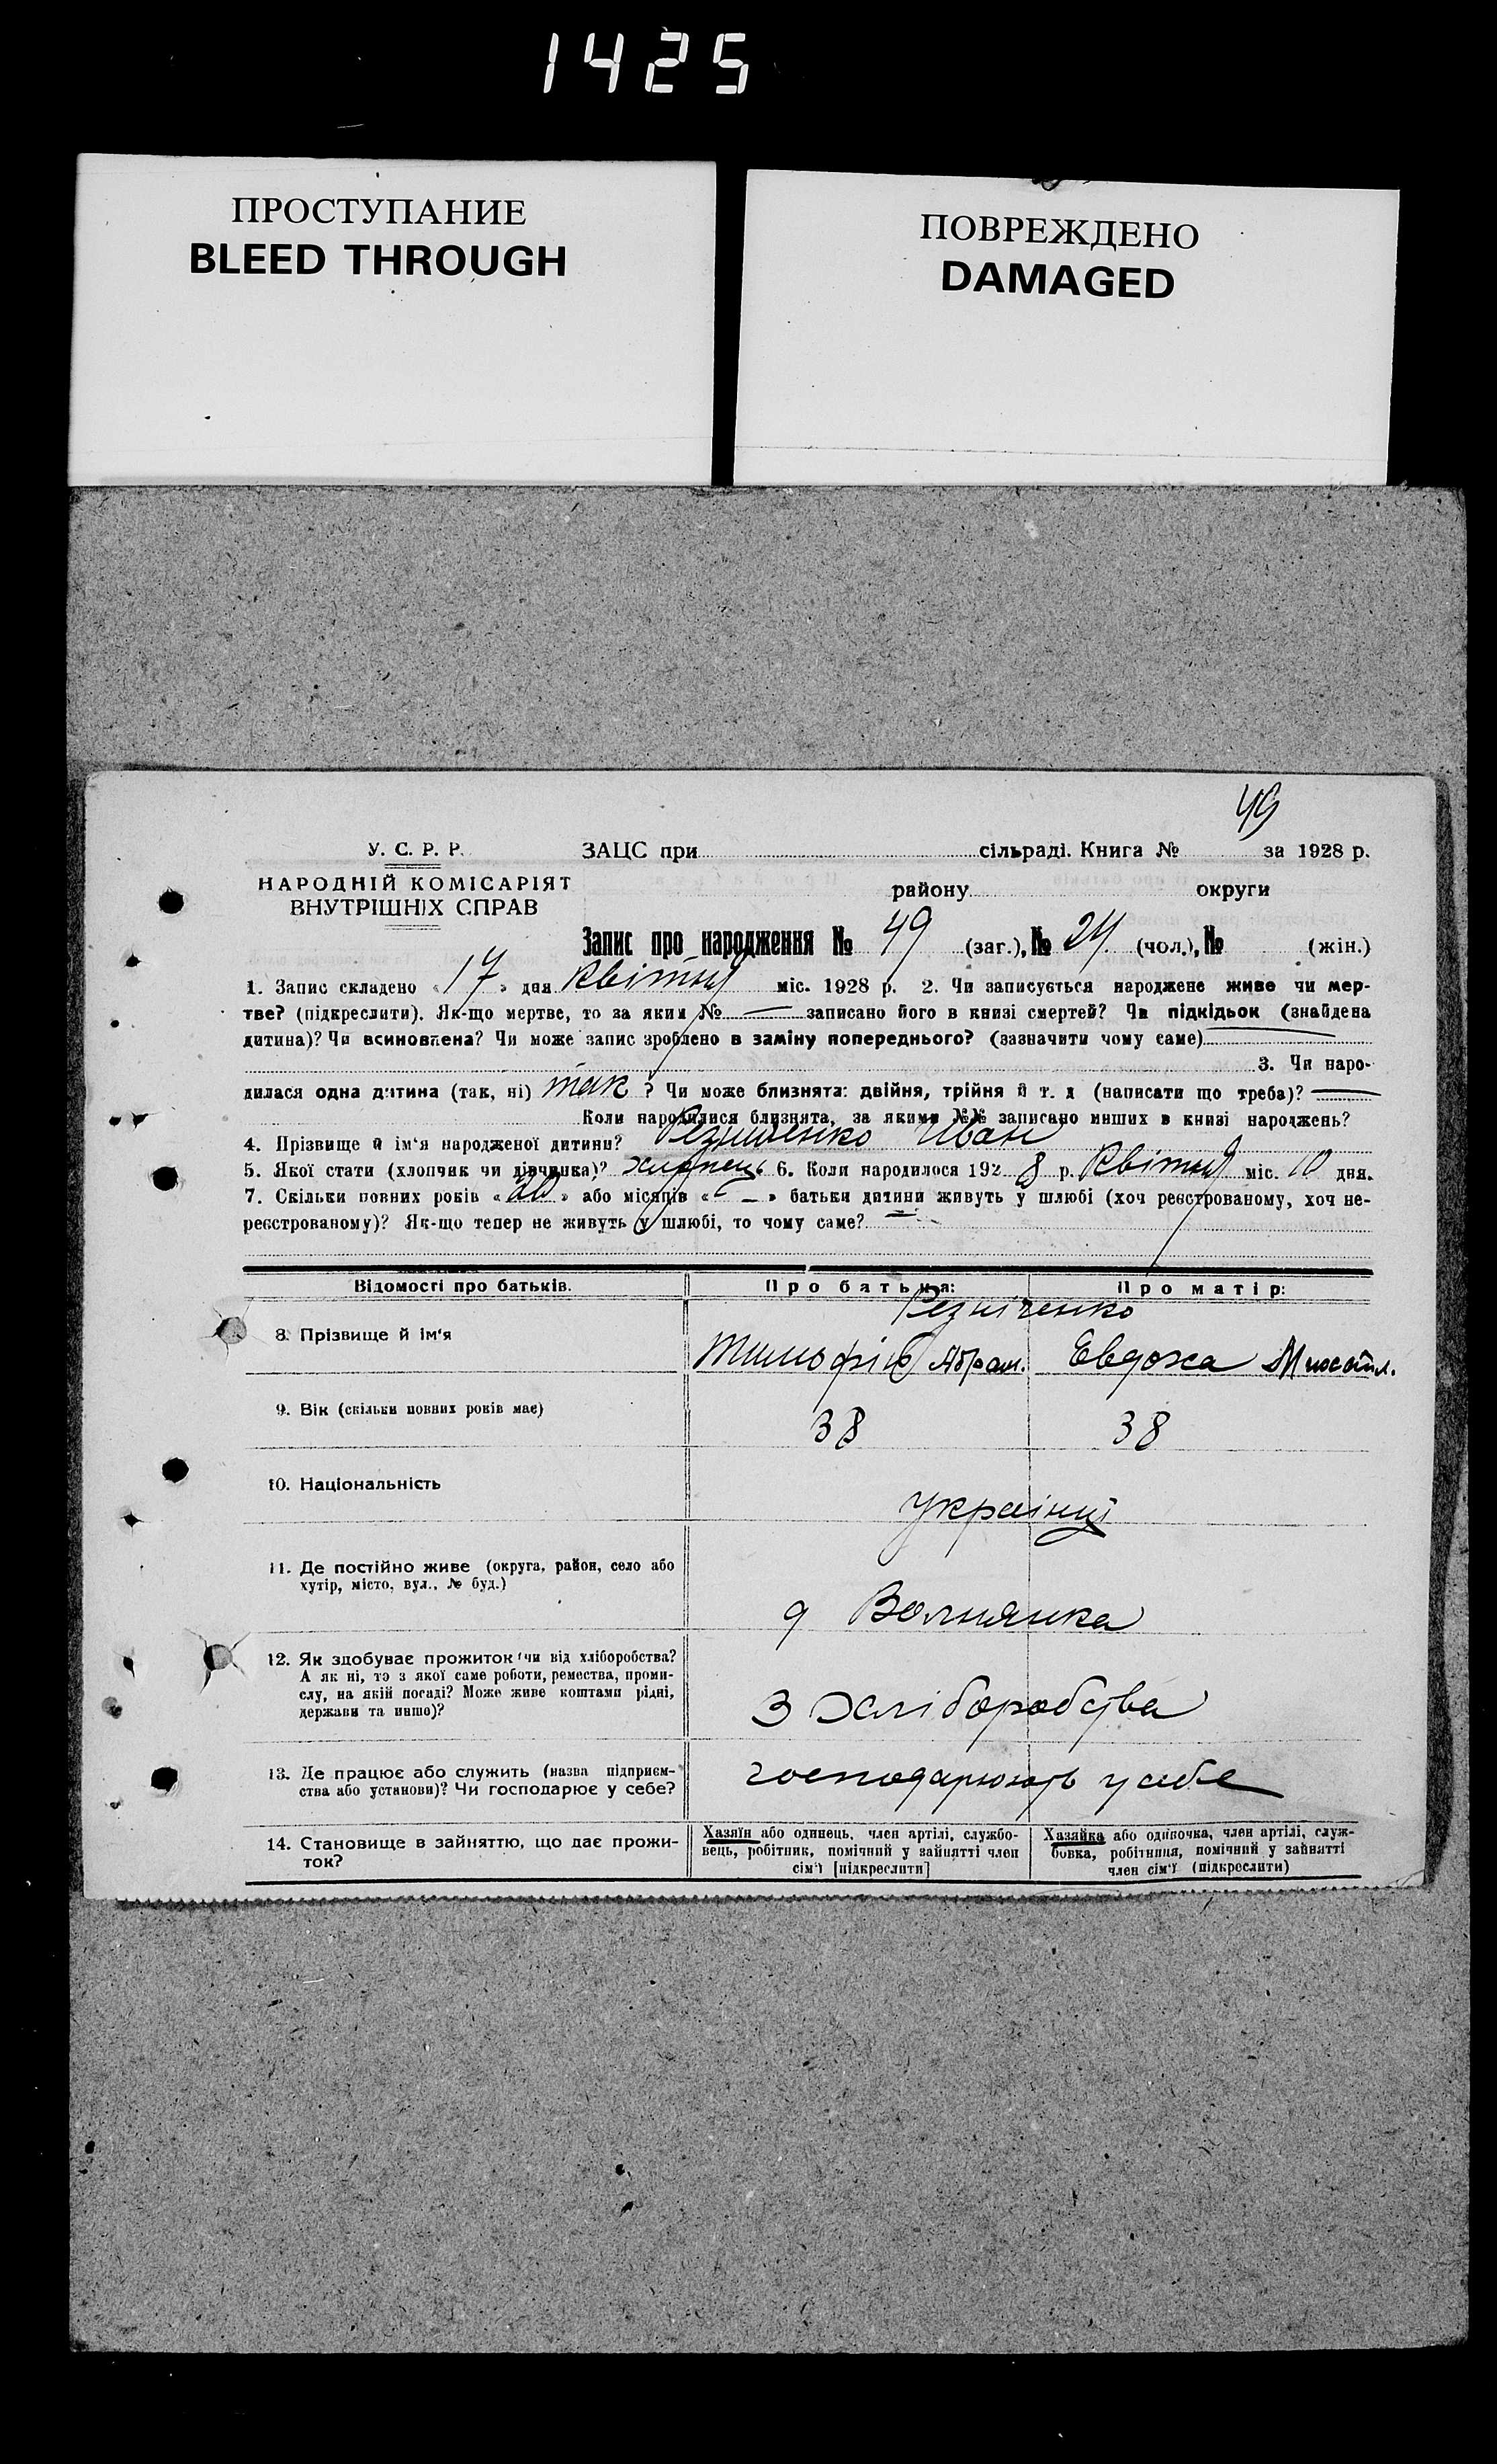 1425
ПРОСТУПАНИЕ
BLEED THROUGH
ПОВРЕЖДЕНО
DAMAGED
49
У. С. Р. Р.
НАРОДНІЙ КОМІСАРІЯТ
ВНУТРІШНІХ СПРАВ
ЗАЦС при сільраді. Книга № за 1928 р.
району округи
Запис про народження № 49 (заг.), № 24 (чол.), № (жін.)
1. Запис складено «17» дня Квітня міс. 1928 р. 2. Чи записується народжене живе чи мер-
тве? (підкреслити). Як-що мертве, то за яким № — записано його в книзі смертей? Чи підкідьок (знайдена
дитина)? Чи всиновлена? Чи може запис зроблено в заміну попереднього? (зазначити чому саме) —
3. Чи наро-
дилася одна дитина (так, ні) так ? Чи може близнята: двійня, трійня й т. д (написати що треба)? —
Коли народилися близнята, за якими №№ записано инших в книзі народжень?
4. Прізвище й ім'я народженої дитини? Резниченко Иван
5. Якої стати (хлопчик чи дівчинка)? хлопець 6. Коли народилося 192 8 р. Квітня міс. 10 дня.
7. Скільки повних років «20» або місяців « — » батьки дитини живуть у шлюбі (хоч реєстрованому, хоч не-
реєстрованому)? Як-що тепер не живуть у шлюбі, то чому саме? —
Відомості про батьків. Про батька: Про матір:
Резніченко
8. Прізвище й ім'я
Тимофій Абрам. Евдоха Михайл.
9. Вік (скільки повних років має)
38 38
10. Національність
Українці
11. Де постійно живе (округа, район, село або
хутір, місто, вул., № буд.)
д Волнянка
12. Як здобуває прожиток чи від хліборобства?
А як ні, то з якої саме роботи, ремества, проми-
слу, на якій посаді? Може живе коштами рідні,
держави та инше)?
З Хліборобства
13. Де працює або служить (назва підприєм-
ства або установи)? Чи господарює у себе?
господарюють у себе
14. Становище в зайняттю, що дає прожи-
ток?
Хазяїн або одинець, член артілі, службо-
вець, робітник, помічний у зайнятті член
сім'ї [підкреслити]
Хазяйка або одиночка, член артілі, служ-
бовка, робітниця, помічний у зайнятті
член сім'ї (підкреслити)